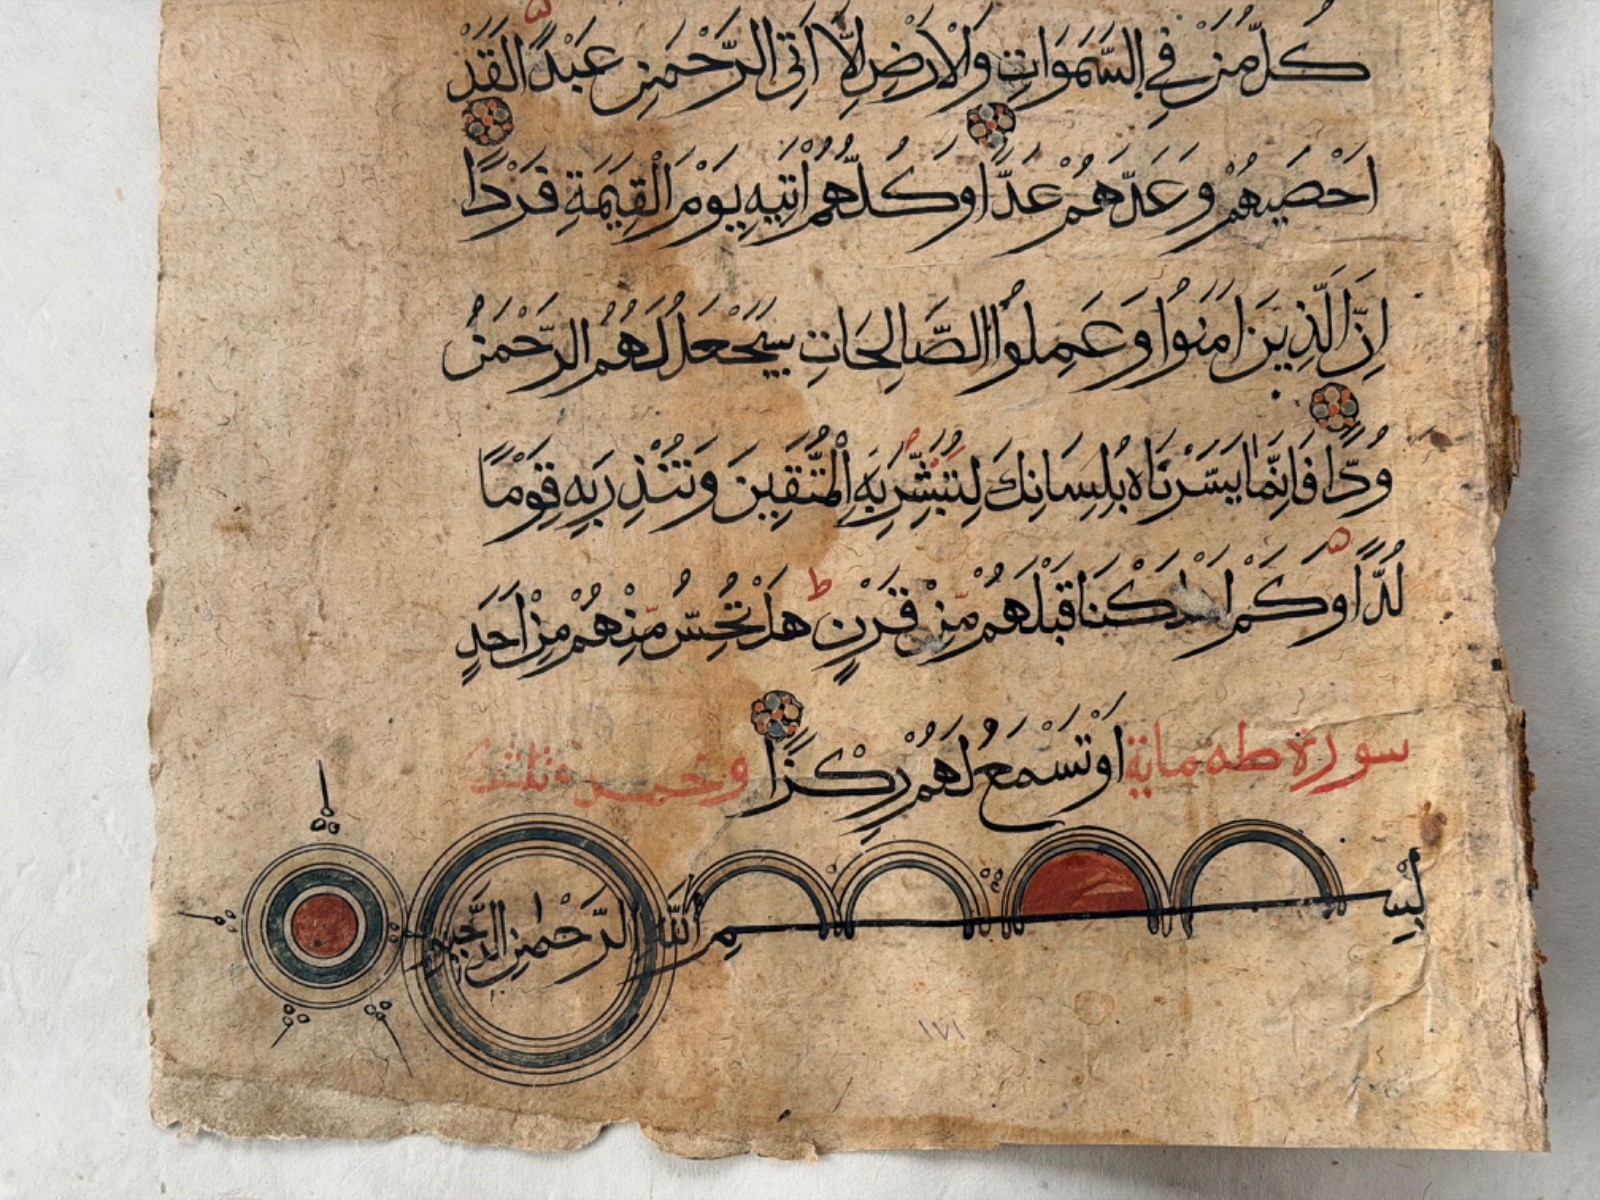 كُلُّ مَنْ فِي السَّمَوَاتِ وَالْأَرْضِ إِلَّا اَتِي الرَّحْمَنِ عَبْدًا لَقَدْ
اَحْصَيهُمْ وَعَدَّهُمْ عَدًّا وَكُلُّهُمْ اٰتِيهِ يَوْمَ الْقِيَمَةِ فَرْدًا
اِنَّ الَّذِينَ اٰمَنُوا وَعَمِلُوا الصَّالِحَاتِ سَيَجْعَلُ لَهُمُ الرَّحْمَنُ
وُدًّا فَاِنَّمَا يَسَّرْنَاهُ بِلِسَانِكَ لِتُبَشِّرَ بِهِ الْمُتَّقِينَ وَتُنْذِرَ بِهِ قَوْمًا
لُدًّا وَكَمْ اَهْلَكْنَا قَبْلَهُمْ مِّنْ قَرْنٍ ط هَلْ تُحِسُّ مِنْهُمْ مِنْ اَحَدٍ
سورة طه ماية اَوْ تَسْمَعُ لَهُمْ رِكْزًا وخمس وثلثون
بِسْمِ اللَّهِ الرَّحْمٰنِ الرَّحِيمِ
١٧١